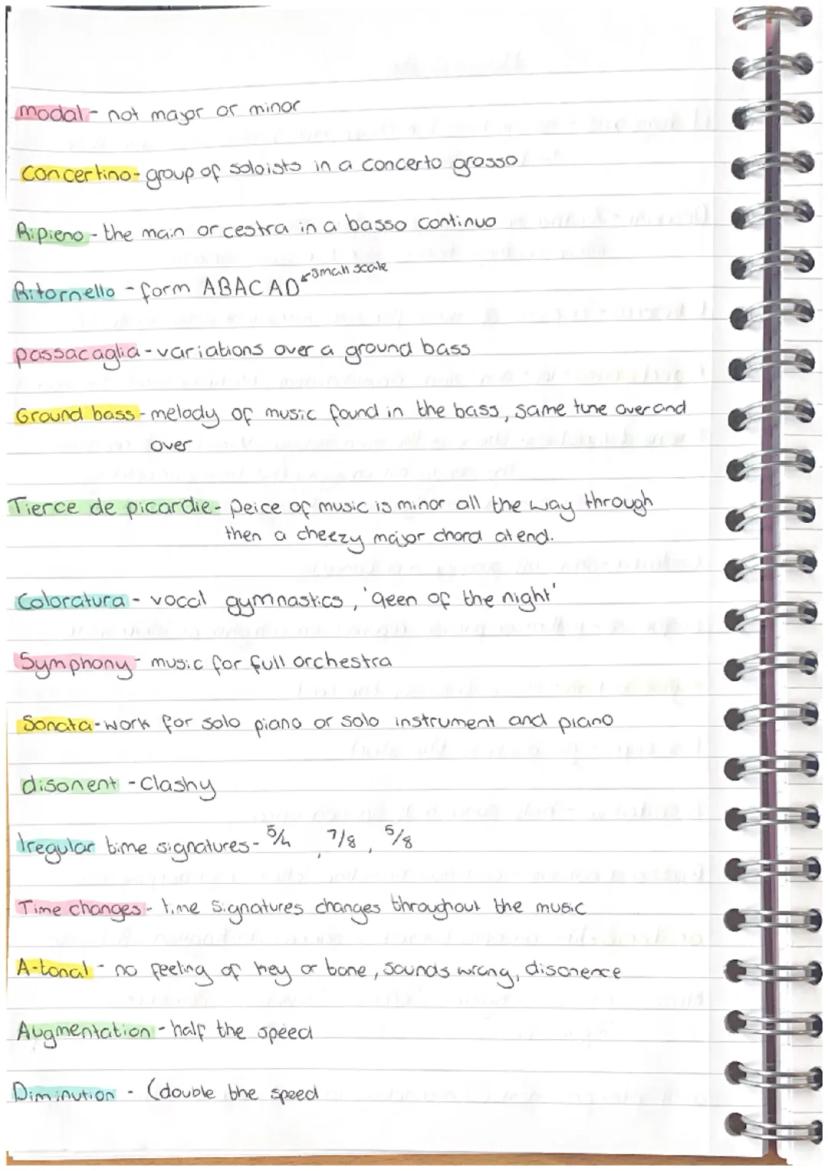 modal - not major or minor
Concertino - group of soloists in a concerto grosso
Ripieno - the main orcestra in a basso continuo
Ritornello - form ABACAD small scale
passacaglia - variations over a ground bass
Ground bass - melody of music found in the bass, same tune over and
over
Tierce de picardie - Peice of music is minor all the way through
then a cheezy major chord at end.
Coloratura - vocal gymnastics, 'qeen of the night'
Symphony - music for full orchestra
Sonata - work for solo piano or solo instrument and piano
disonent - Clashy
Iregular time signatures - 5/4 , 7/8 , 5/8
Time changes - time signatures changes throughout the music
A-tonal - no feeling of key or tone, sounds wrong, disonence
Augmentation - half the speed
Diminution - (double the speed